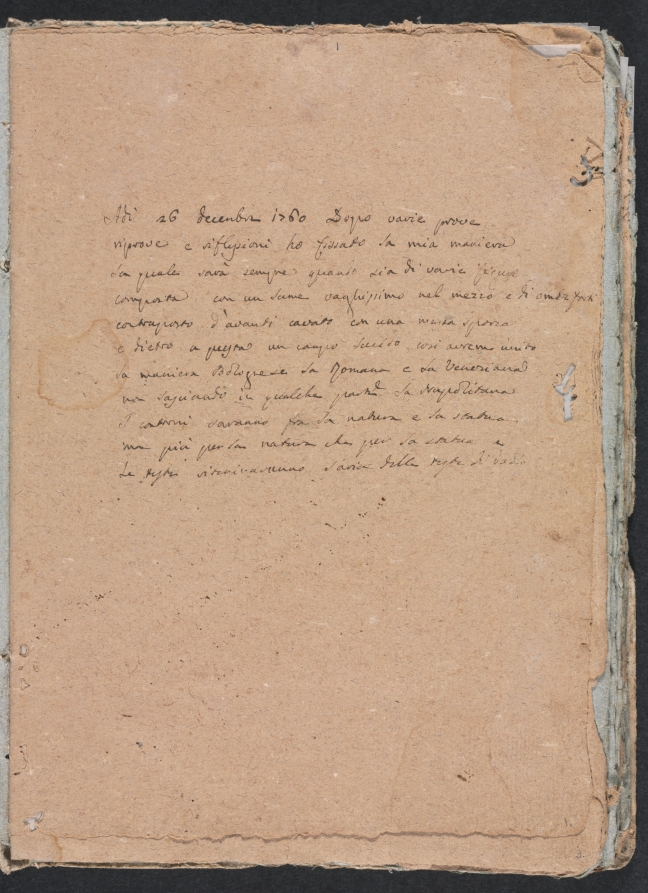 1
Adi 26 decembre 1760 Dopo varie prove
riprove e riflessioni ho fissato la mia maniera
la quale sarà sempre quando sia di varie figure
composta con un lume vaghissimo nel mezzo e di ombre forti
contraposto d'avanti cavato con una
e dietro a questa un campo lucido così averem unito
la maniera Bolognese la Romana e la Veneziana
non lasciando in qualche parte la Napolitana
I contorni saranno fra la natura e la statua
ma più per la natura che per la statua e
le teste l'aria delle teste di